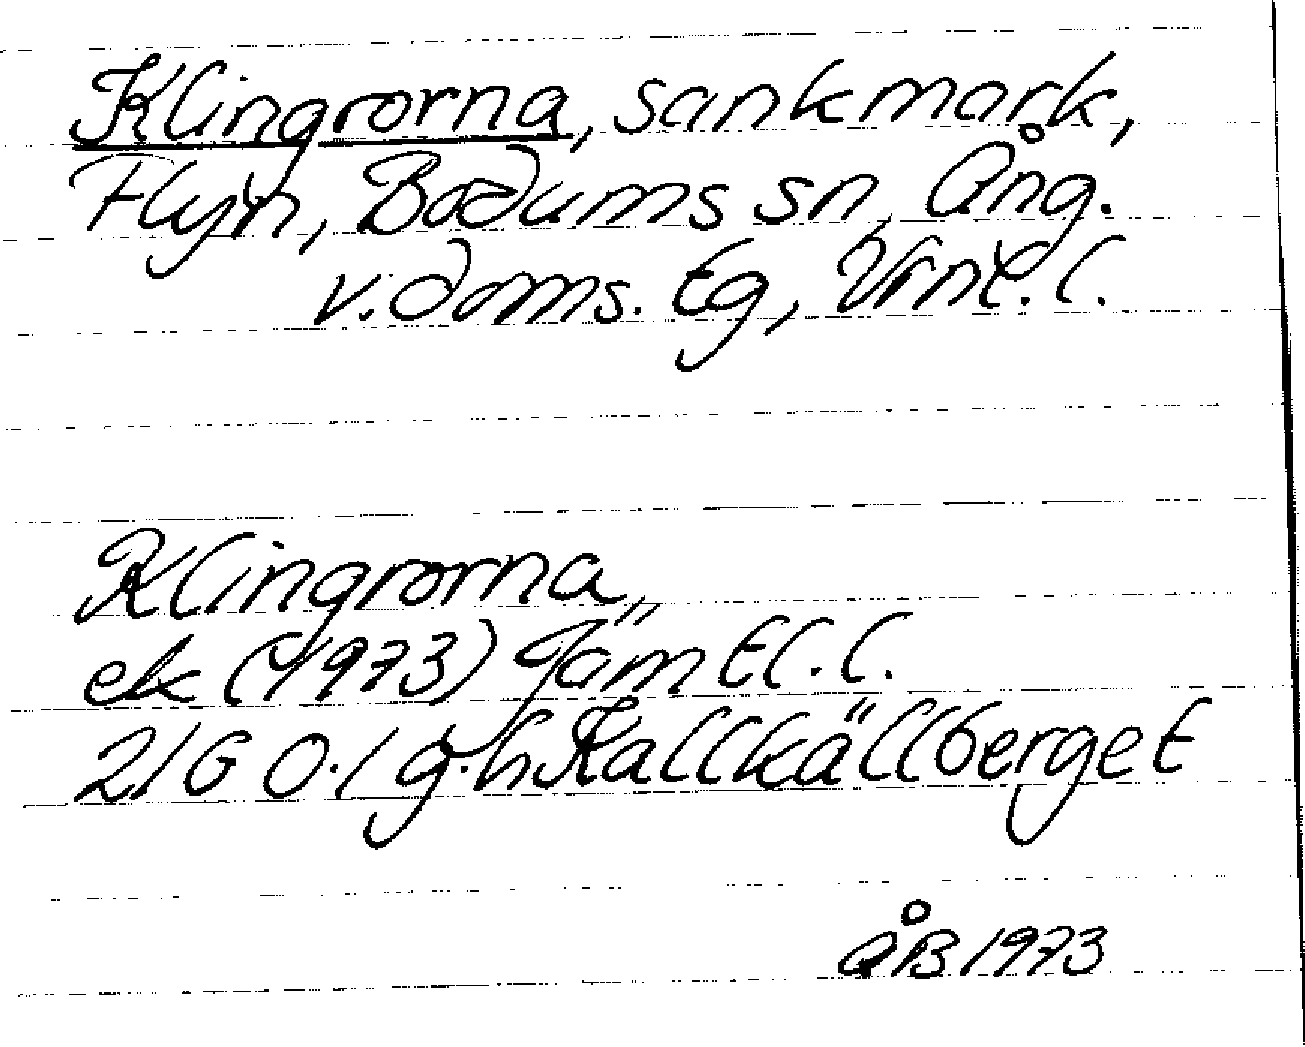 Klingrorna, sankmark,
Flyn, Bodums sn, Ång.
v. doms. tg, Vrnl. l.
Klingrorna,
ek (1973) Jämtl. l.
21G 0. / g.h Kallkällberget
ÅB 1973